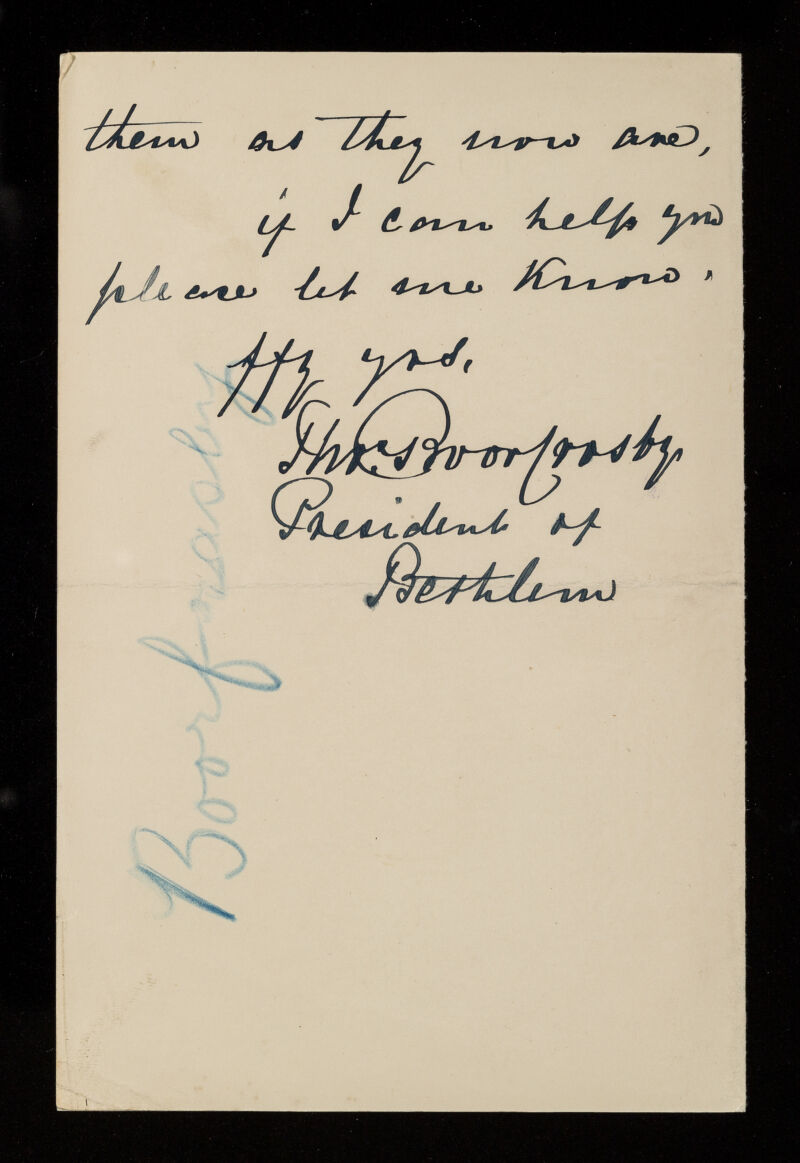 them as they now are,
if I can help you
please let me know.
ffy yrs,
Thos. Boor Crosby
President of
Bethlem
Boor Crosby